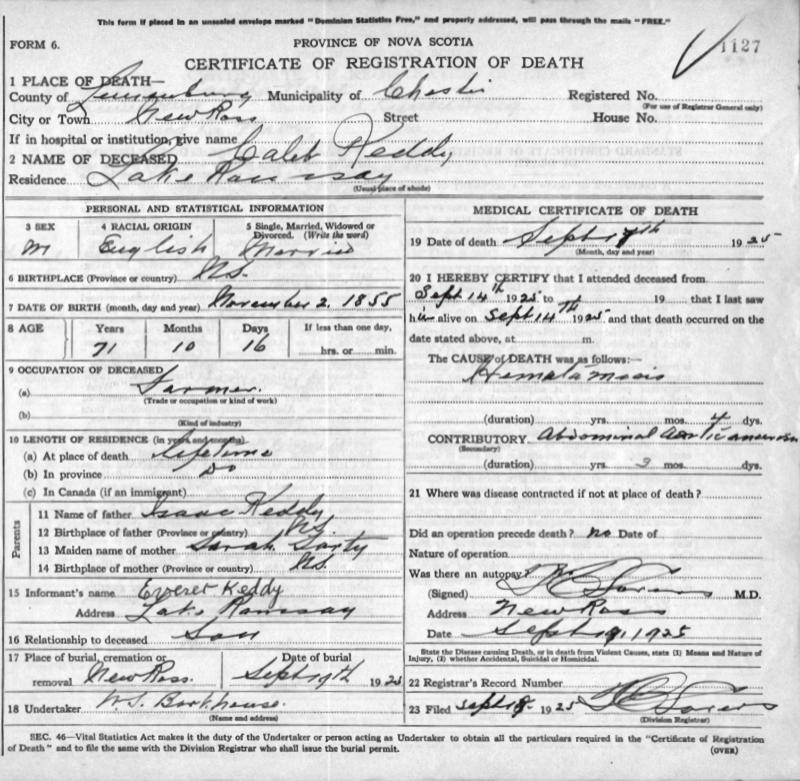 This form if placed in an unsealed envelope marked "Dominion Statistics Free," and properly addressed, will pass through the mails "FREE."
FORM 6.
PROVINCE OF NOVA SCOTIA
1127
CERTIFICATE OF REGISTRATION OF DEATH
1 PLACE OF DEATH—
County of Lunenburg Municipality of Chester Registered No.
(For use of Registrar General only)
City or Town New Ross Street House No.
If in hospital or institution, give name
2 NAME OF DECEASED Caleb Keddy
Residence Lake Ramsay
(Usual place of abode)
PERSONAL AND STATISTICAL INFORMATION
3 SEX 4 RACIAL ORIGIN 5 Single, Married, Widowed or Divorced. (Write the word)
M English Married
6 BIRTHPLACE (Province or country) N.S.
7 DATE OF BIRTH (month, day and year) November 2. 1855
8 AGE Years Months Days If less than one day,
71 10 16 hrs. or min.
9 OCCUPATION OF DECEASED
(a) Farmer.
(Trade or occupation or kind of work)
(b)
(Kind of industry)
10 LENGTH OF RESIDENCE (in years and months)
(a) At place of death Lifetime
(b) In province Do
(c) In Canada (if an immigrant)
Parents
11 Name of father Isaac Keddy
12 Birthplace of father (Province or country) N.S.
13 Maiden name of mother Sarah
14 Birthplace of mother (Province or country) N.S.
15 Informant's name Everet Keddy
Address Lake Ramsay
16 Relationship to deceased Son
17 Place of burial, cremation or removal New Ross. Date of burial Sept 19th 1925
18 Undertaker W.S. Barkhouse.
(Name and address)
MEDICAL CERTIFICATE OF DEATH
19 Date of death Sept 1925
(Month, day and year)
20 I HEREBY CERTIFY that I attended deceased from
Sept 14th 1925 to 19 that I last saw
him alive on Sept 14th 1925 and that death occurred on the
date stated above, at m.
The CAUSE of DEATH was as follows:—
Hematamesis
(duration) yrs. mos. 4 dys.
CONTRIBUTORY Abdominal Aortic
(Secondary)
(duration) yrs. 3 mos. dys.
21 Where was disease contracted if not at place of death?
Did an operation precede death? no Date of
Nature of operation
Was there an autopsy?
(Signed) M.D.
Address New Ross
Date Sept 19, 1925
State the Disease causing Death, or in death from Violent Causes, state (1) Means and Nature of
Injury, (2) whether Accidental, Suicidal or Homicidal.
22 Registrar's Record Number
23 Filed Sept 1925
(Division Registrar)
SEC. 46—Vital Statistics Act makes it the duty of the Undertaker or person acting as Undertaker to obtain all the particulars required in the "Certificate of Registration
of Death" and to file the same with the Division Registrar who shall issue the burial permit.
(OVER)